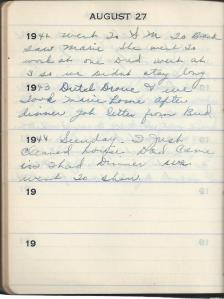 AUGUST 27
1942 went To S M To Bank
Saw Marie She went To
work at one Dad went at
3 so we didnt stay long
1943 Dutch Drove & we
Took Marie home after
dinner got letter from Bud
1944 Sunday. I just
cleaned house Dad came
in I had Dinner we
went To show
19
19